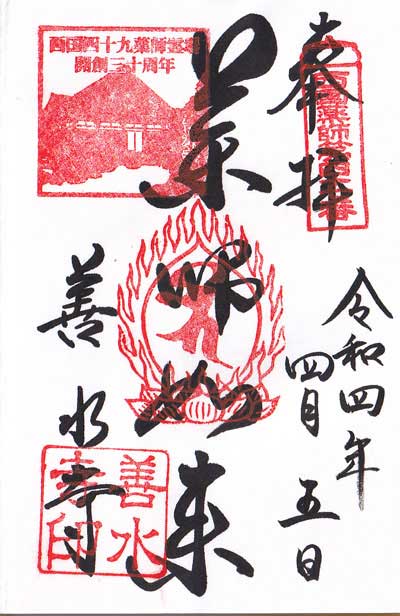 奉拝
令和四年
四月五日
薬師如来
善水寺
西国四十九薬師霊場
開創三十周年
善水
寺印